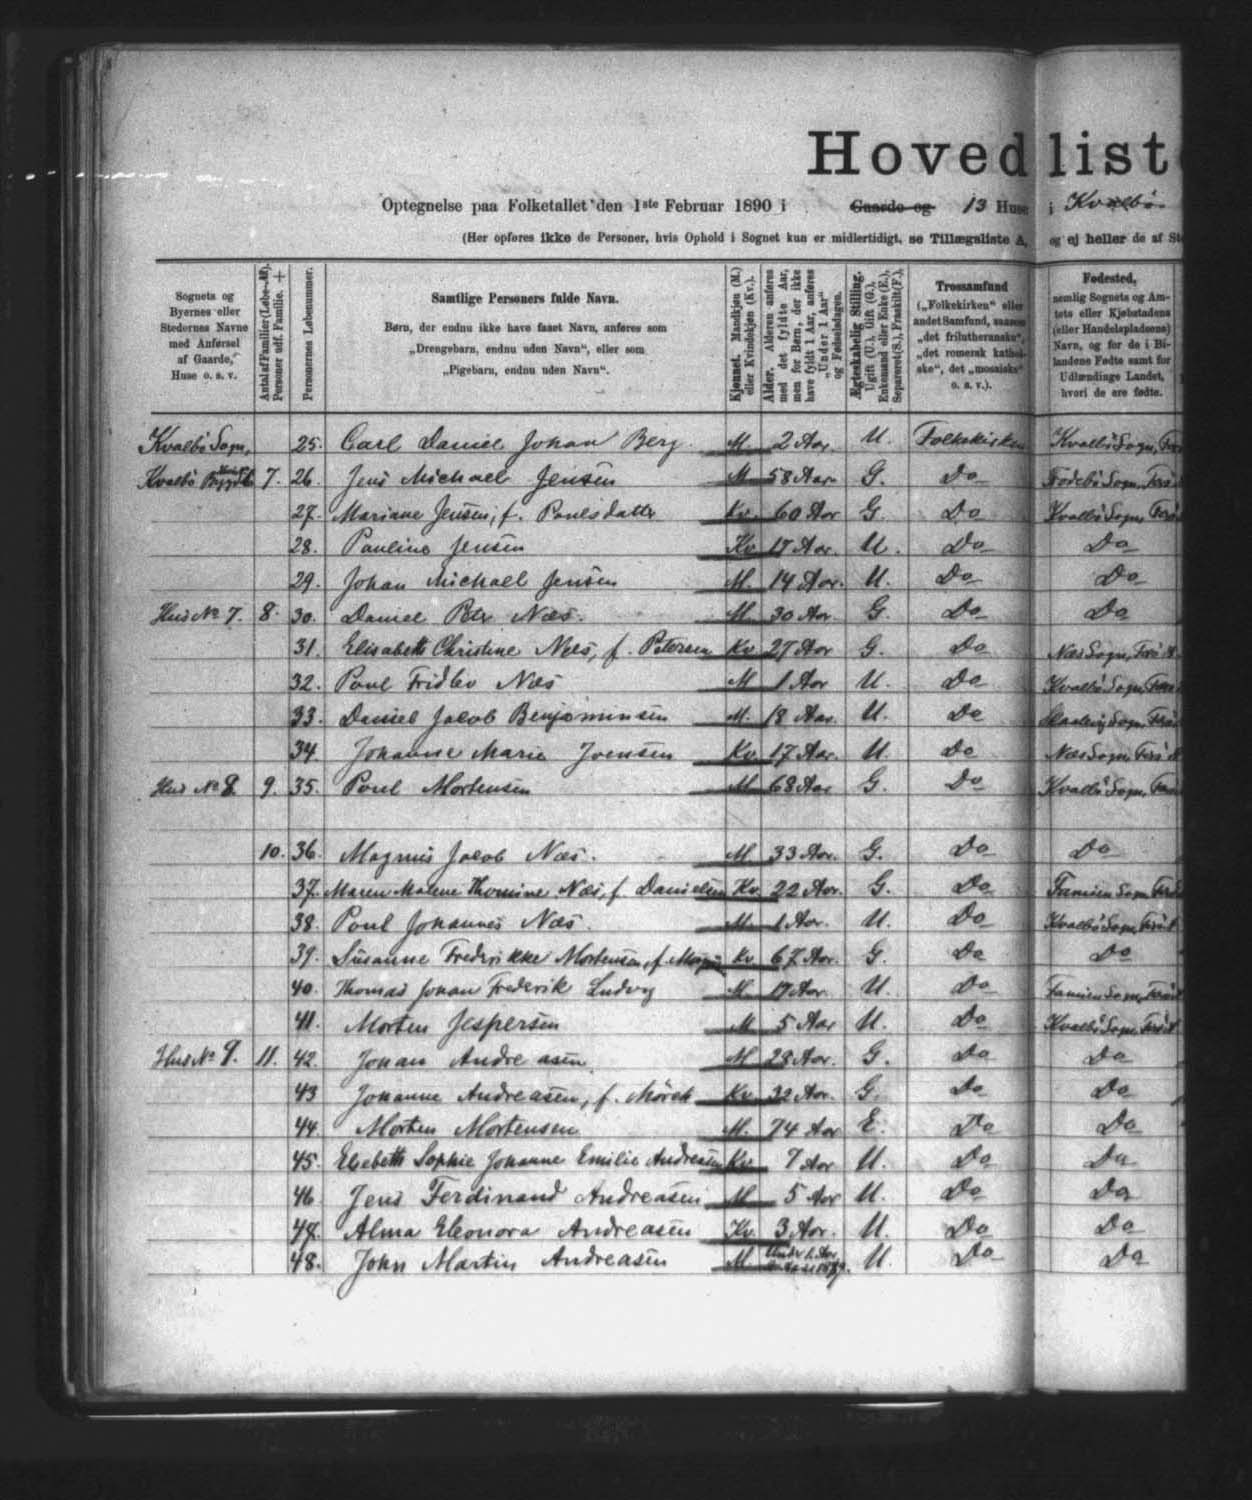 Hovedliste
Optegnelse paa Folketallet den 1ste Februar 1890 i Gaarde og 13 Huse i Kvalbø
(Her opføres ikke de Personer, hvis Ophold i Sognet kun er midlertidigt, se Tillægsliste A, og ej heller de af
Sognets og Byernes eller Stedernes Navne med Anførsel af Gaarde, Huse o. s. v.
Antal af Familier (Løbe-№). Personer udf. Familie. +
Personernes Løbenummer.
Samtlige Personers fulde Navn.
Børn, der endnu ikke have faaet Navn, anføres som
„Drengebarn, endnu uden Navn“, eller som
„Pigebarn, endnu uden Navn“.
Kjønnet. Mandkjøn (M.) eller Kvindekjøn (Kv.).
Alder. Alderen anføres med det fyldte Aar, men for Børn, der ikke have fyldt 1 Aar, anføres „Under 1 Aar“ og Fødselsdagen.
Ægteskabelig Stilling. Ugift (U.), Gift (G.), Enkemand eller Enke (E.), Separeret (S.), Fraskilt (F.).
Trossamfund („Folkekirken“ eller andet Samfund, saasom „det frilutheranske“, „det romersk katholske“, det „mosaiske“ o. s. v.).
Fødested, nemlig Sognets og Amtets eller Kjøbstadens (eller Handelspladsens) Navn, og for de i Bilandene Fødte samt for Udlændinge Landet, hvori de ere fødte.
Kvalbø Sogn, 25. Carl Daniel Johan Berg. M. 2 Aar. U. Folkekirken Kvalbø Sogn,
Kvalbø Bygd 7. 26. Jens Michael Jensen M. 58 Aar G. Do Sogn,
27. Mariane Jensen, f. Poulsdatter Kv. 60 Aar G. Do Kvalbø Sogn,
28. Pauline Jensen Kv 17 Aar. U. Do Do
29. Johan Michael Jensen M. 14 Aar. U. Do Do
Hus № 7. 8. 30. Daniel Peter Næs. M. 30 Aar G. Do Do
31. Elisabeth Christine Næs, f. Petersen Kv 27 Aar G. Do Næs Sogn,
32. Poul Fridlev Næs M 1 Aar U. Do Kvalbø Sogn,
33. Daniel Jacob Benjaminsen M. 18 Aar. U. Do Sogn,
34. Johanne Marie Joensen Kv. 17 Aar. U. Do Næs Sogn,
Hus № 8. 9. 35. Poul Mortensen M 68 Aar G. Do Kvalbø Sogn,
10. 36. Magnus Jacob Næs. M 33 Aar. G. Do Do
37. Maren Malene Thomine Næs, f. Danielsen Kv. 22 Aar. G. Do Famien Sogn,
38. Poul Johannes Næs. M. 1 Aar. U. Do Kvalbø Sogn,
39. Susanne Frederikke Mortensen, f. Kv. 67 Aar. G. Do Do
40. Thomas Johan Frederik Ludvig M. 17 Aar. U. Do Famien Sogn,
41. Morten Jespersen M 5 Aar U. Do Kvalbø Sogn,
Hus № 9. 11. 42. Johan Andreasen. M 28 Aar. G. Do Do
43 Johanne Andreasen, f. Mørch Kv. 32 Aar. G. Do Do
44. Morten Mortensen M. 74 Aar E. Do Do
45. Elsebeth Sophie Johanne Emilie Andreasen Kv. 7 Aar U. Do Do
46. Jens Ferdinand Andreasen M 5 Aar U. Do Do
47. Alma Eleonora Andreasen Kv. 3 Aar. U. Do Do
48. John Martin Andreasen M. Under 1 Aar U. Do Do